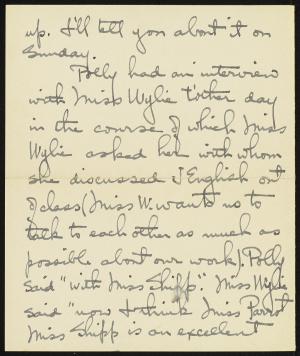 up. I'll tell you about it on
Sunday.
Polly had an interview
with Miss Wylie t'other day
in the course of which Miss
Wylie asked her with whom
she discussed English out
of class (Miss W. wants us to
talk to each other as much as
possible about our work). Polly
said "with Miss Shipp". Miss Wylie
said "now I think Miss Parrot
Miss Shipp is an excellent